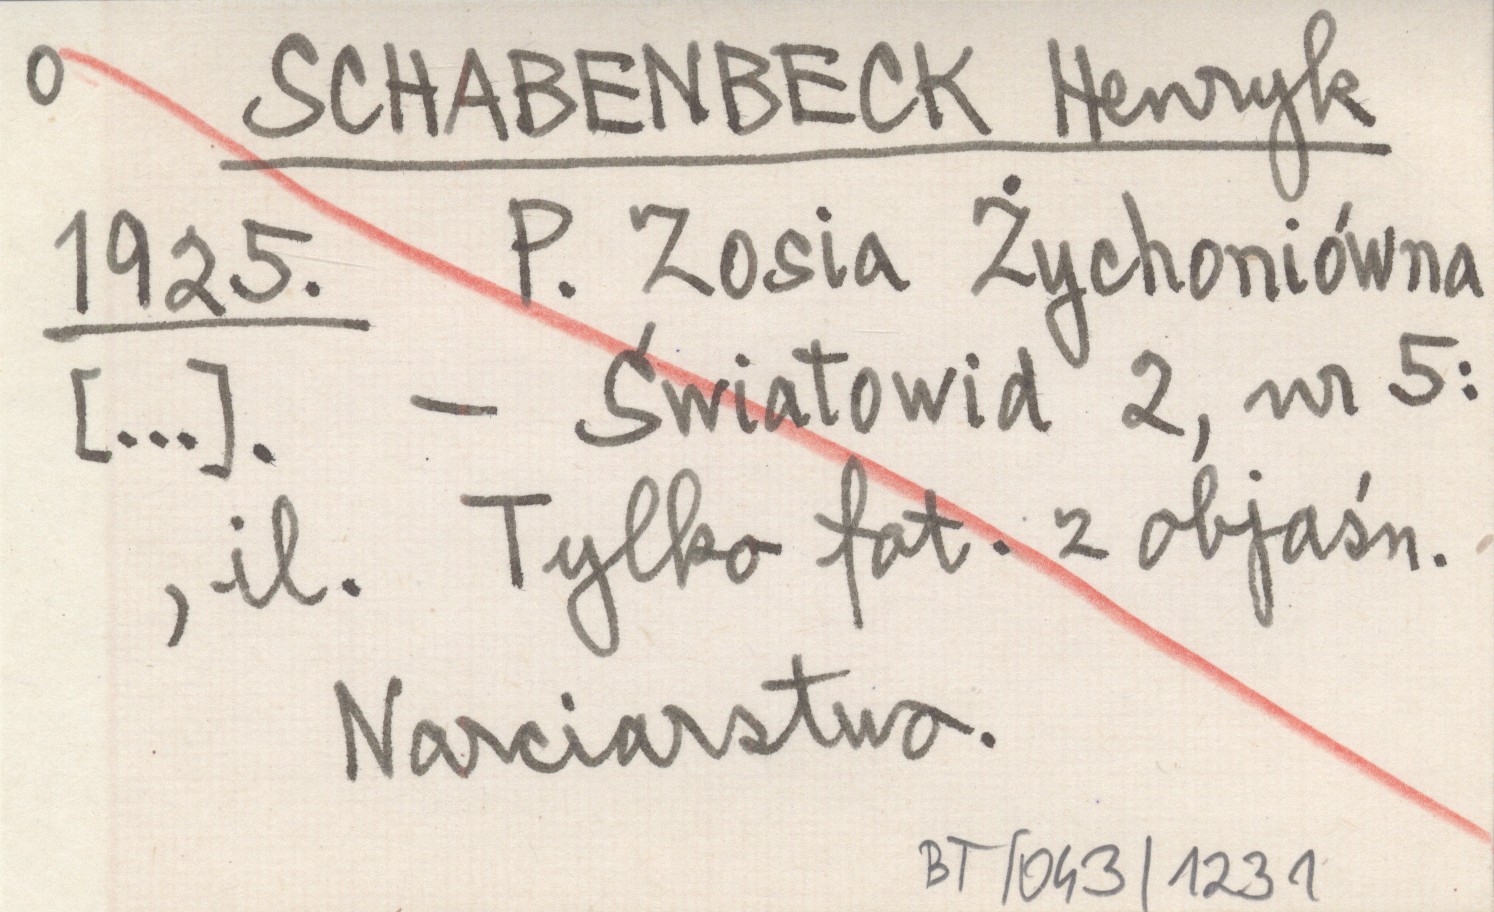 0 SCHABENBECK Henryk
1925. P. Zosia Żychoniówna
[...]. – Światowid 2, nr 5:
, il. Tylko fot. z objaśn.
Narciarstwo.
BT/043/1231